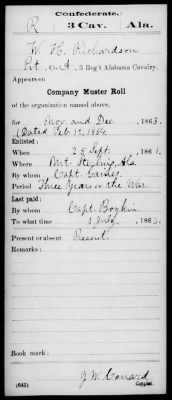 Confederate.
R 3 Cav. Ala.
W. H. Richardson
Pvt., Co. A, 3 Reg't Alabama Cavalry.
Appears on
Company Muster Roll
of the organization named above,
for Nov. and Dec., 1863.
(Dated Feb. 12, 1864)
Enlisted:
When 25 Sept., 1861.
Where Mt. Sterling Ala.
By whom Capt. Gaines
Period Three Years or the War.
Last paid:
By whom Capt. Boykin
To what time 1863.
Present or absent Present.
Remarks:
Book mark:
J. W. Conrard
(642) Copyist.